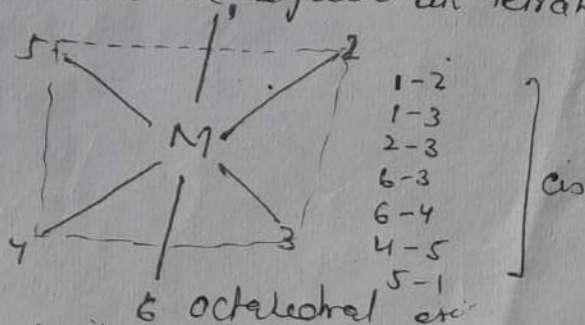 5 2
M
4 3
6 octahedral
1-2
1-3
2-3
6-3
6-4
4-5
5-1
cis